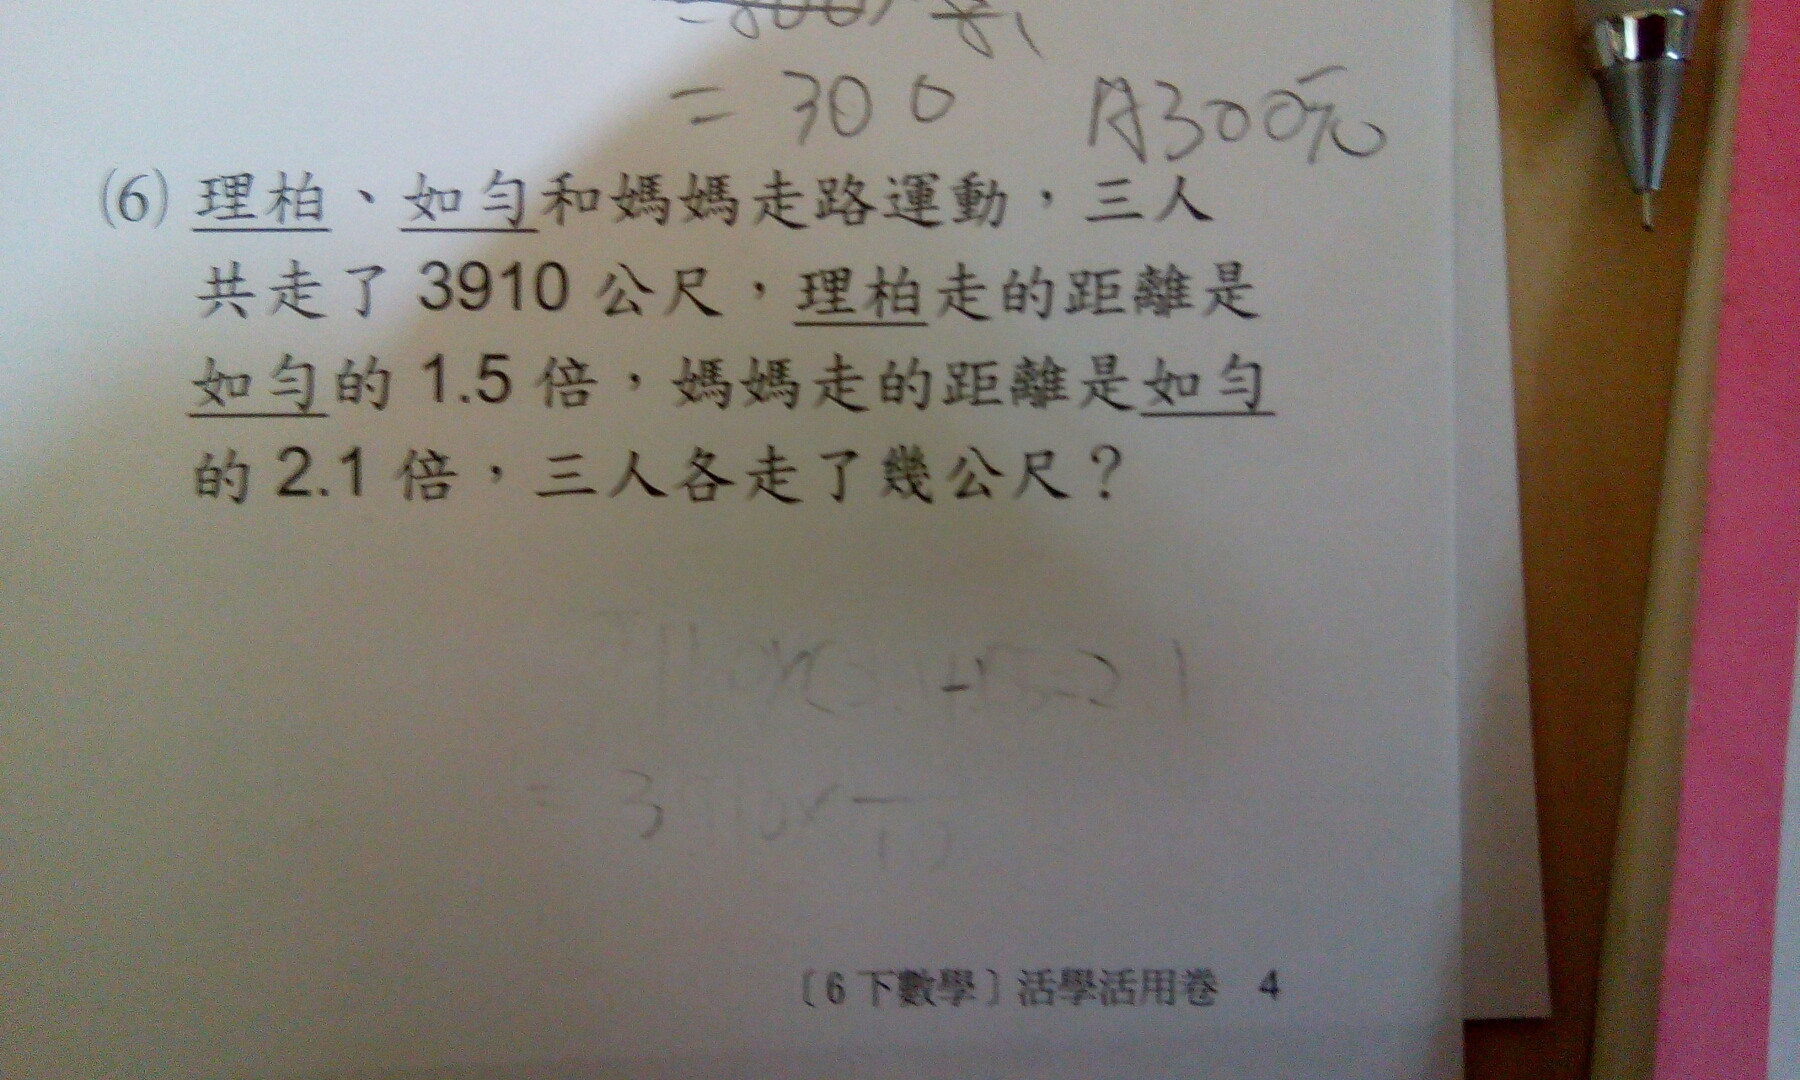 = 300 A300元
(6) 理柏、如勻和媽媽走路運動，三人
共走了 3910 公尺，理柏走的距離是
如勻的 1.5 倍，媽媽走的距離是如勻
的 2.1 倍，三人各走了幾公尺？
〔6 下數學〕活學活用卷 4